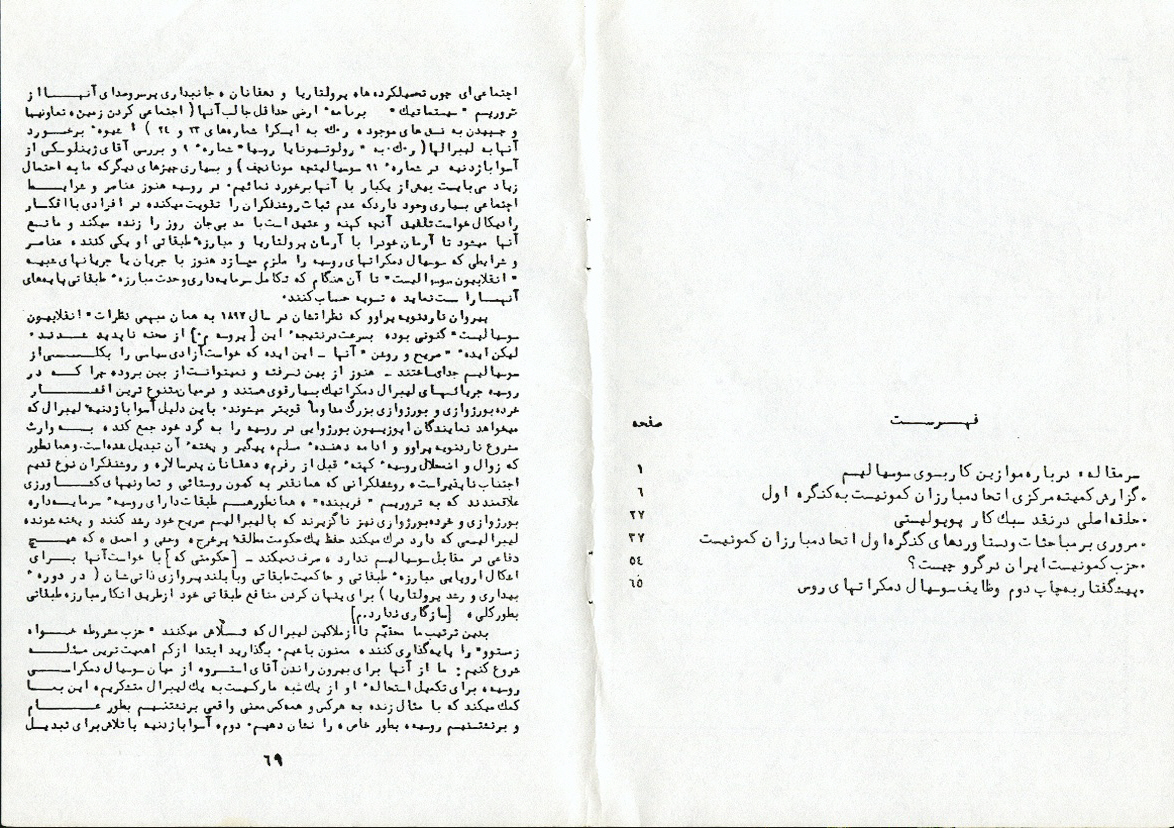 فهرست
صفحه
سرمقاله، درباره موازین کار بسوی سوسیالیسم ۱
•گزارش کمیته مرکزی اتحاد مبارزان کمونیست به کنگره اول ۶
•حلقه اصلی در نقد سبک کار پوپولیستی ۲۷
•مروری بر مباحثات و دستاوردهای کنگره اول اتحاد مبارزان کمونیست ۳۷
•حزب کمونیست ایران در گرو چیست؟ ۵۴
•پیشگفتار به چاپ دوم وظایف سوسیال دمکراتهای روس ۶۵
اجتماعی‌ای چون تحصیلکرده‌ها، پرولتاریا و دهقانان، جانبداری پرسروصدای آنها از
تروریسم "سیستماتیک" برنامه ارضی حداقل جالب آنها (اجتماعی کردن زمین، تعاونیها
و چسبیدن به نسق‌های موجود، ر.ک. به ایسکرا شماره‌های ۲۳ و ۲۴)؛ شیوه برخورد
آنها به لیبرالها (ر.ک. به "رولوتسیونایا روسیا" شماره ۹ و بررسی آقای ژیتلوسکی از
آسوا باژدنیه در شماره ۹۱ سوسیالیتچه مونا‌تچف) و بسیاری چیزهای دیگر که ما به احتمال
زیاد می‌بایست بیش از یکبار با آنها برخورد نمائیم. در روسیه هنوز عناصر و شرایط
اجتماعی بسیاری وجود دارد که عدم ثبات روشنفکران را تقویت میکند، در افرادی با افکار
رادیکال خواست تلفیق آنچه کهنه و عتیق است با مد بی‌جان روز را زنده میکند و مانع
آنها میشود تا آرمان خود را با آرمان پرولتاریا و مبارزه طبقاتی او یکی کنند، عناصر
و شرایطی که سوسیال دمکراتهای روسیه را ملزم میسازد هنوز با جریان یا جریانهای شبیه
"انقلابیون سوسیالیست" تا آن هنگام که تکامل سرمایه‌داری و حدت مبارزه طبقاتی پایه‌های
آنها را سست نماید، تسویه حساب کنند.
پیروان ناردنویه پراوو که نظراتشان در سال ۱۸۹۷ به همان مبهمی نظرات "انقلابیون
سوسیالیست" کنونی بود، بسرعت در نتیجه این [پروسه م.] از صحنه ناپدید شدند.
لیکن ایده "صریح و روشن" آنها - این ایده که خواست آزادی سیاسی را بکلی از
سوسیالیسم جدا ساختند - هنوز از بین نرفته و نمیتوانست از بین برود، چرا که در
روسیه جریانهای لیبرال دمکراتیک بسیار قوی هستند و در میان متنوع ترین اقشار
خرده بورژوازی و بورژوازی بزرگ مداوماً قویتر میشوند. باین دلیل آسوا باژدنیه لیبرال که
میخواهد نمایندگان اپوزیسیون بورژوایی در روسیه را به گرد خود جمع کند، به وارث
مشروع ناردنویه پراوو و ادامه دهنده مسلم، پیگیر و پخته آن تبدیل شده است. و همانطور
که زوال و اضمحلال روسیه کهنه قبل از رفرم، دهقانان پدرسالار، و روشنفکران نوع قدیم
اجتناب ناپذیر است، روشنفکرانی که همانقدر به کمون روستائی و تعاونیهای کشاورزی
علاقمندند که به تروریسم "فریبنده"، همانطور هم طبقات دارای روسیه، سرمایه‌دار،
بورژوازی و خرده بورژوازی نیز ناگزیرند که با لیبرالیسم صریح خود رشد کنند و پخته شوند،
لیبرالیسمی که دارد درک میکند حفظ یک حکومت مطلقه پرخرج، وحشی و احمق، که هیچ
دفاعی در مقابل سوسیالیسم ندارد، صرف نمیکند - [حکومتی که] با خواست آنها برای
اشکال اروپایی مبارزه طبقاتی و حاکمیت طبقاتی و با بلندپروازی ذاتی‌شان (در دوره
بیداری و رشد پرولتاریا) برای پنهان کردن منافع طبقاتی خود از طریق انکار مبارزه طبقاتی
بطور کلی، [سازگاری ندارد.م]
بدین ترتیب ما محقیم تا از ملاکین لیبرال که تلاش میکنند "حزب مشروطه خواه
زمستوو" را پایه‌گذاری کنند، ممنون باشیم. بگذارید ابتدا از کم اهمیت ترین مسئله
شروع کنیم: ما از آنها برای بیرون راندن آقای استرووه از میان سوسیال دمکراسی
روسیه، برای تکمیل استحاله او از یک شبه مارکسیست به یک لیبرال متشکریم، این بما
کمک میکند که با مثال زنده به هرکس و همه‌کس معنی واقعی برنشتنیسم بطور عام
و برنشتنیسم روسیه، بطور خاص، را نشان دهیم. دوم، آسوا باژدنیه با تلاش برای تبدیل
۶۹